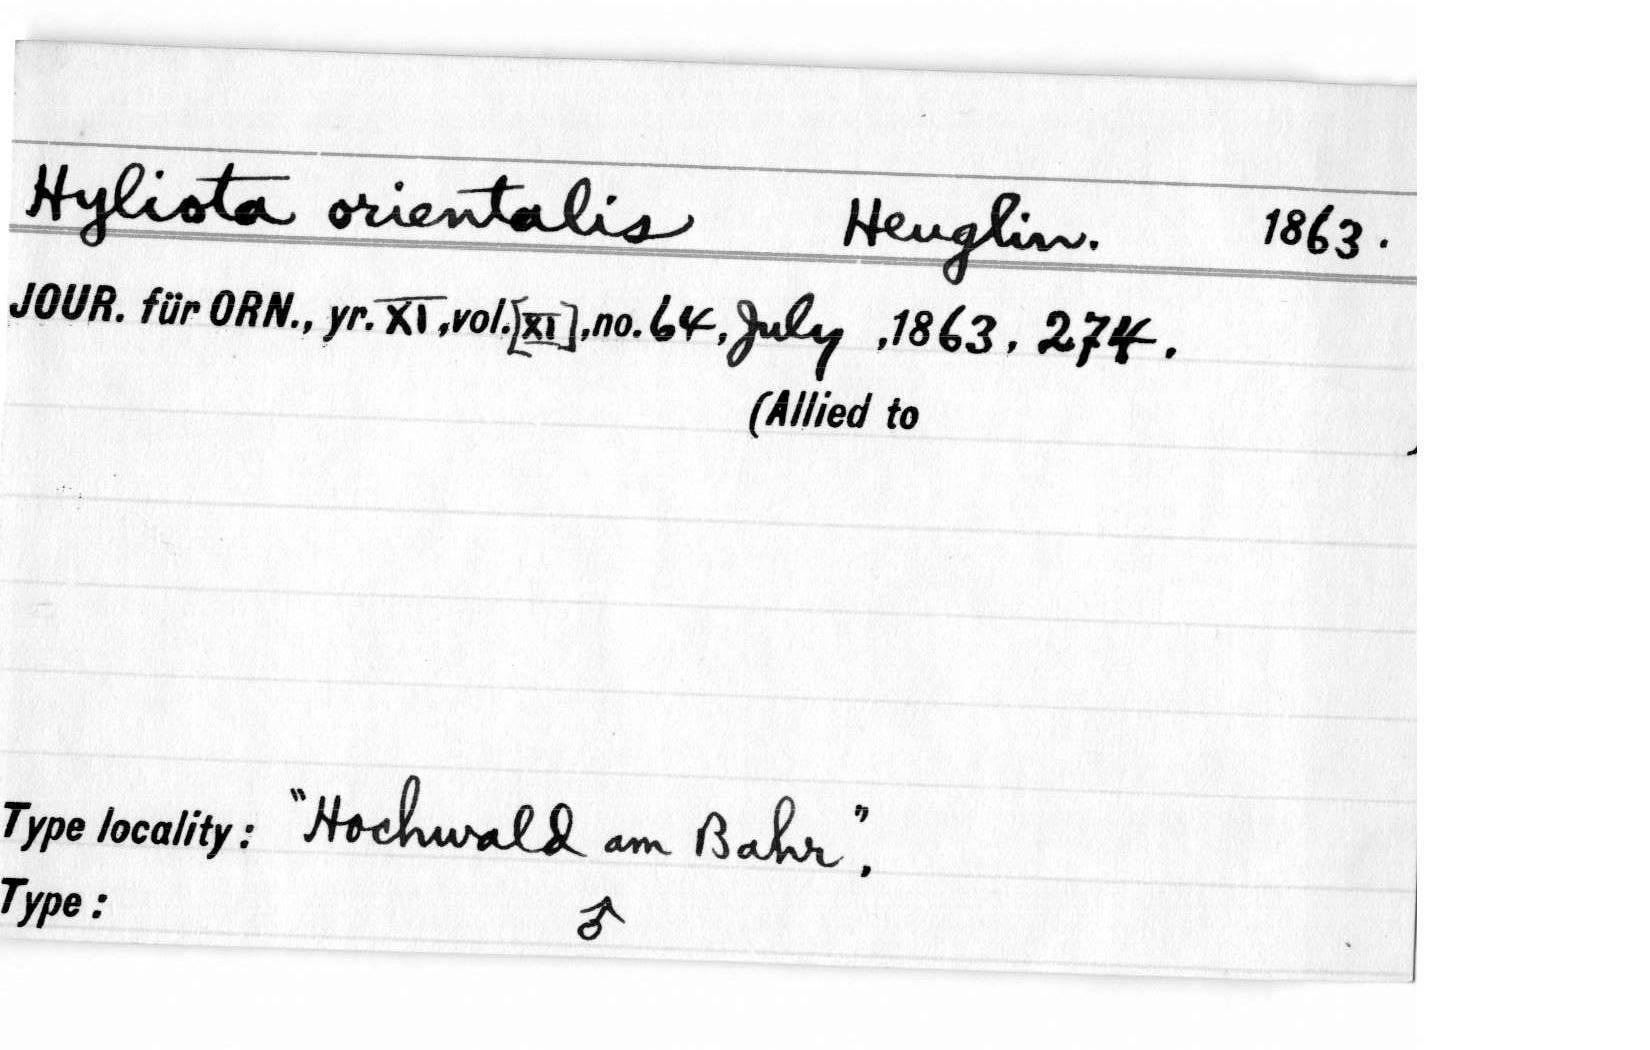 Hyliota orientalis Heuglin. 1863.
JOUR. für ORN., yr. XI, vol. [XI], no. 64, July, 1863, 274.
(Allied to )
Type locality: "Hochwald am Bahr",
Type: ♂